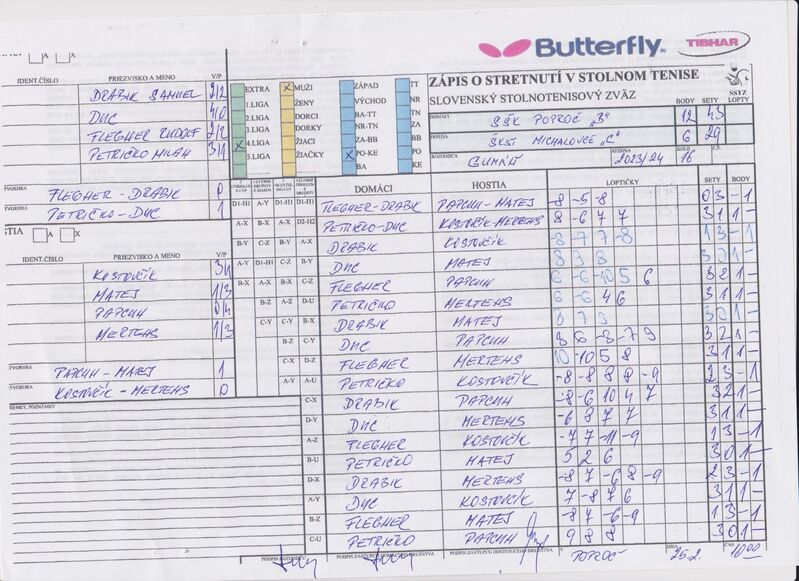 Butterfly.
TIBHAR
IDENT.ČÍSLO PRIEZVISKO A MENO V/P
DRABIK SAMUEL 2/2
DUC 4/0
FLEGNER RUDOLF 2/2
PETRIČKO MILAN 3/1
EXTRA
1.LIGA
2.LIGA
3.LIGA
x 4.LIGA
5.LIGA
x MUŽI
ŽENY
DORCI
DORKY
ŽIACI
ŽIAČKY
ZÁPAD
VÝCHOD
BA-TT
NR-TN
ZA-BB
x PO-KE
BA
TT
NR
TN
ZA
BB
PO
KE
ZÁPIS O STRETNUTÍ V STOLNOM TENISE
SLOVENSKÝ STOLNOTENISOVÝ ZVÄZ
BODY SETY LOPTY
DOMÁCI SŠK POPROČ „B“ 12 43
HOSTIA ŠKST MICHALOVCE „C“ 6 29
ROZHODCA SEZÓNA 2023/24 KOLO 16
FLEGNER-DRABIK 0
PETRIČKO-DUC 1
STIA A X
IDENT.ČÍSLO PRIEZVISKO A MENO V/P
KOSTOVČÍK 3/1
MATEJ 1/3
PAPCUN 0/4
MERTENS 1/3
PAPCUN - MATEJ 1
KOSTOVČÍK - MERTENS 0
DOMÁCI HOSTIA LOPTIČKY SETY BODY
D1-H1 A-Y D1-H1 D1-H1 FLEGNER-DRABIK PAPCUN-MATEJ -8 -5 -8 0 3 - 1
A-X B-X A-X D2-H2 PETRIČKO-DUC KOSTOVČÍK-MERTENS 8 -6 7 7 3 1 1 -
B-Y C-Z B-Y A-X DRABIK KOSTOVČÍK -8 -7 7 -8 1 3 - 1
A-Y D1-H1 C-Z B-Y DUC MATEJ 8 9 8 3 0 1 -
B-X A-X A-Y C-Z FLEGNER PAPCUN 6 -6 -10 5 6 3 2 1 -
B-Z A-Z D-U PETRIČKO MERTENS 6 -6 4 6 3 1 1 -
C-Y B-Y B-X DRABIK MATEJ 8 7 9 3 0 1 -
B-Z C-Y DUC PAPCUN 8 6 -8 -7 9 3 2 1 -
C-X D-Z FLEGNER MERTENS 10 -10 5 8 3 1 1 -
A-Y A-U PETRIČKO KOSTOVČÍK -8 -8 8 8 -9 2 3 - 1
C-X DRABIK PAPCUN -8 -6 10 4 7 3 2 1 -
D-Y DUC MERTENS -6 8 7 7 3 1 1 -
A-Z FLEGNER KOSTOVČÍK -7 7 -11 -9 1 3 - 1
B-U PETRIČKO MATEJ 5 2 6 3 0 1 -
D-X DRABIK MERTENS -8 7 -6 8 -9 2 3 - 1
A-Y DUC KOSTOVČÍK 7 -8 7 6 3 1 1 -
B-Z FLEGNER MATEJ -8 7 -6 -9 1 3 - 1
C-U PETRIČKO PAPCUN 9 8 8 3 0 1 -
V POPROČ DŇA 25.2. ČAS 10 00